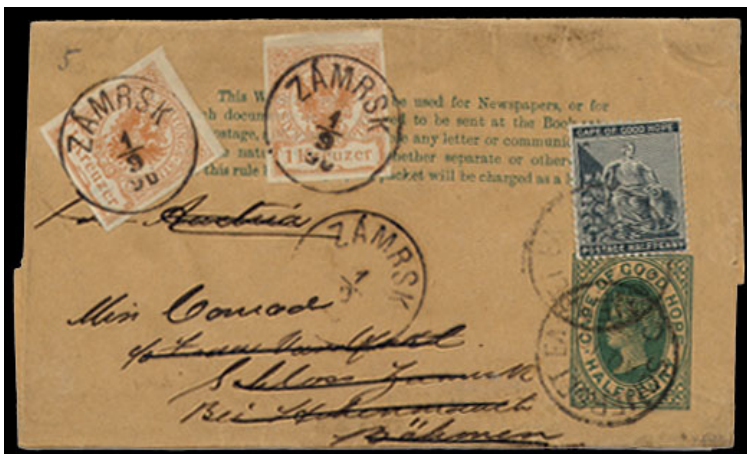 5
ZÁMRSK
1/9
90
ZÁMRSK
1/9
90
1 Kreuzer
Kreuzer
This W be used for Newspapers, or for
ch docum ed to be sent at the Book
ostage, e any letter or communi
e natu hether separate or other
this rule cket will be charged as a
CAPE OF GOOD HOPE
POSTAGE HALFPENNY
Austria
ZÁMRSK
CAPE OF GOOD HOPE
HALFPENNY
Miss Conrad
Schloss Zamrsk
Bei Hohenmauth
Böhmen